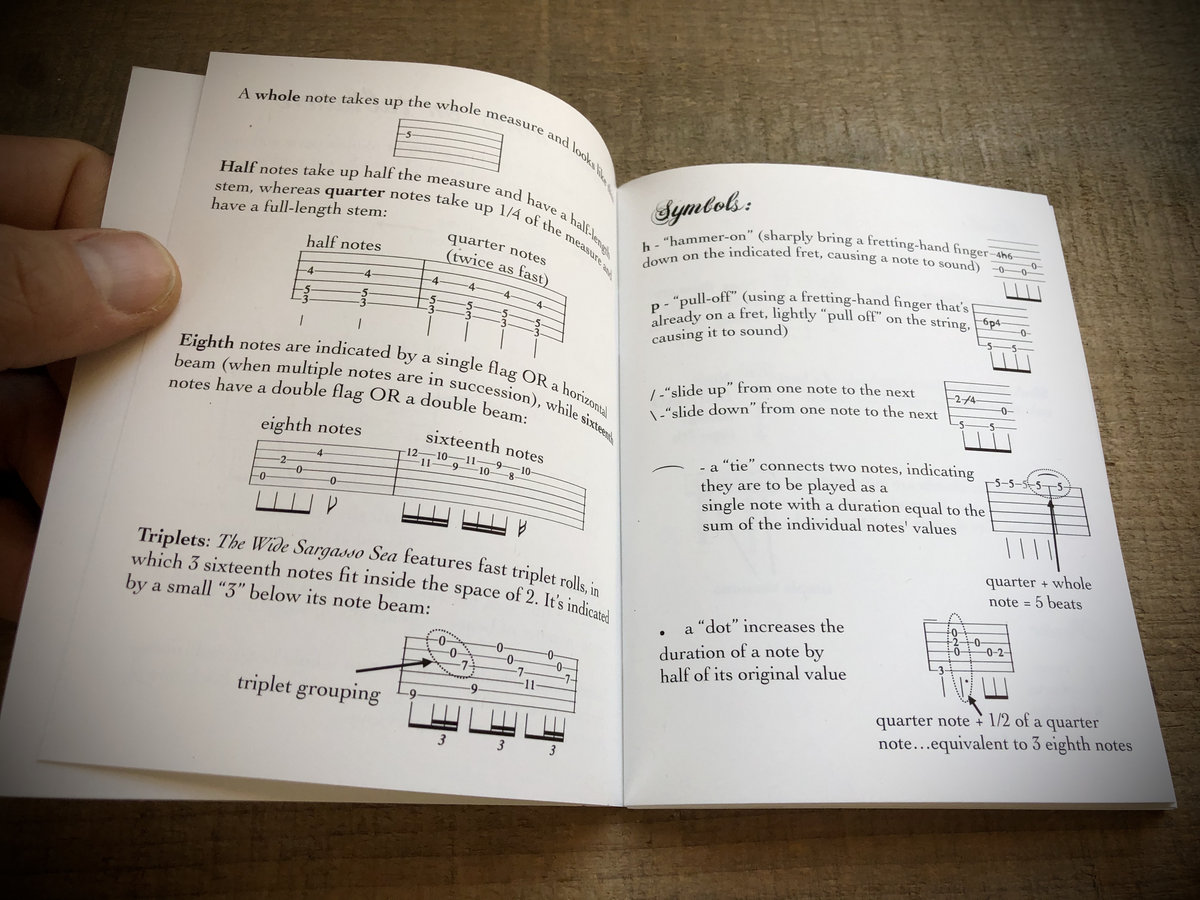 A whole note takes up the whole measure and looks like
5
Half notes take up half the measure and have a half-length
stem, whereas quarter notes take up 1/4 of the measure and
have a full-length stem:
half notes
quarter notes
(twice as fast)
4 4 4 4 4 4
5 5 5 5 5 5
3 3 3 3 3 3
Eighth notes are indicated by a single flag OR a horizontal
beam (when multiple notes are in succession), while sixteenth
notes have a double flag OR a double beam:
eighth notes
sixteenth notes
4
2
0
0 0
12 10 11 9 10
11 9 10 8
Triplets: The Wide Sargasso Sea features fast triplet rolls, in
which 3 sixteenth notes fit inside the space of 2. It's indicated
by a small "3" below its note beam:
0 0 0
0 0 0
7 7 7
9 11
9
triplet grouping
3 3 3
Symbols:
h - "hammer-on" (sharply bring a fretting-hand finger
down on the indicated fret, causing a note to sound)
4h6
0
0 0
p - "pull-off" (using a fretting-hand finger that's
already on a fret, lightly "pull off" on the string,
causing it to sound)
6p4
0
5 5
/ -"slide up" from one note to the next
\ -"slide down" from one note to the next
2/4
0
5 5
- a "tie" connects two notes, indicating
they are to be played as a
single note with a duration equal to the
sum of the individual notes' values
5 5 5 5 5
quarter + whole
note = 5 beats
• a "dot" increases the
duration of a note by
half of its original value
0
2 0
0 0 2
3
quarter note + 1/2 of a quarter
note...equivalent to 3 eighth notes